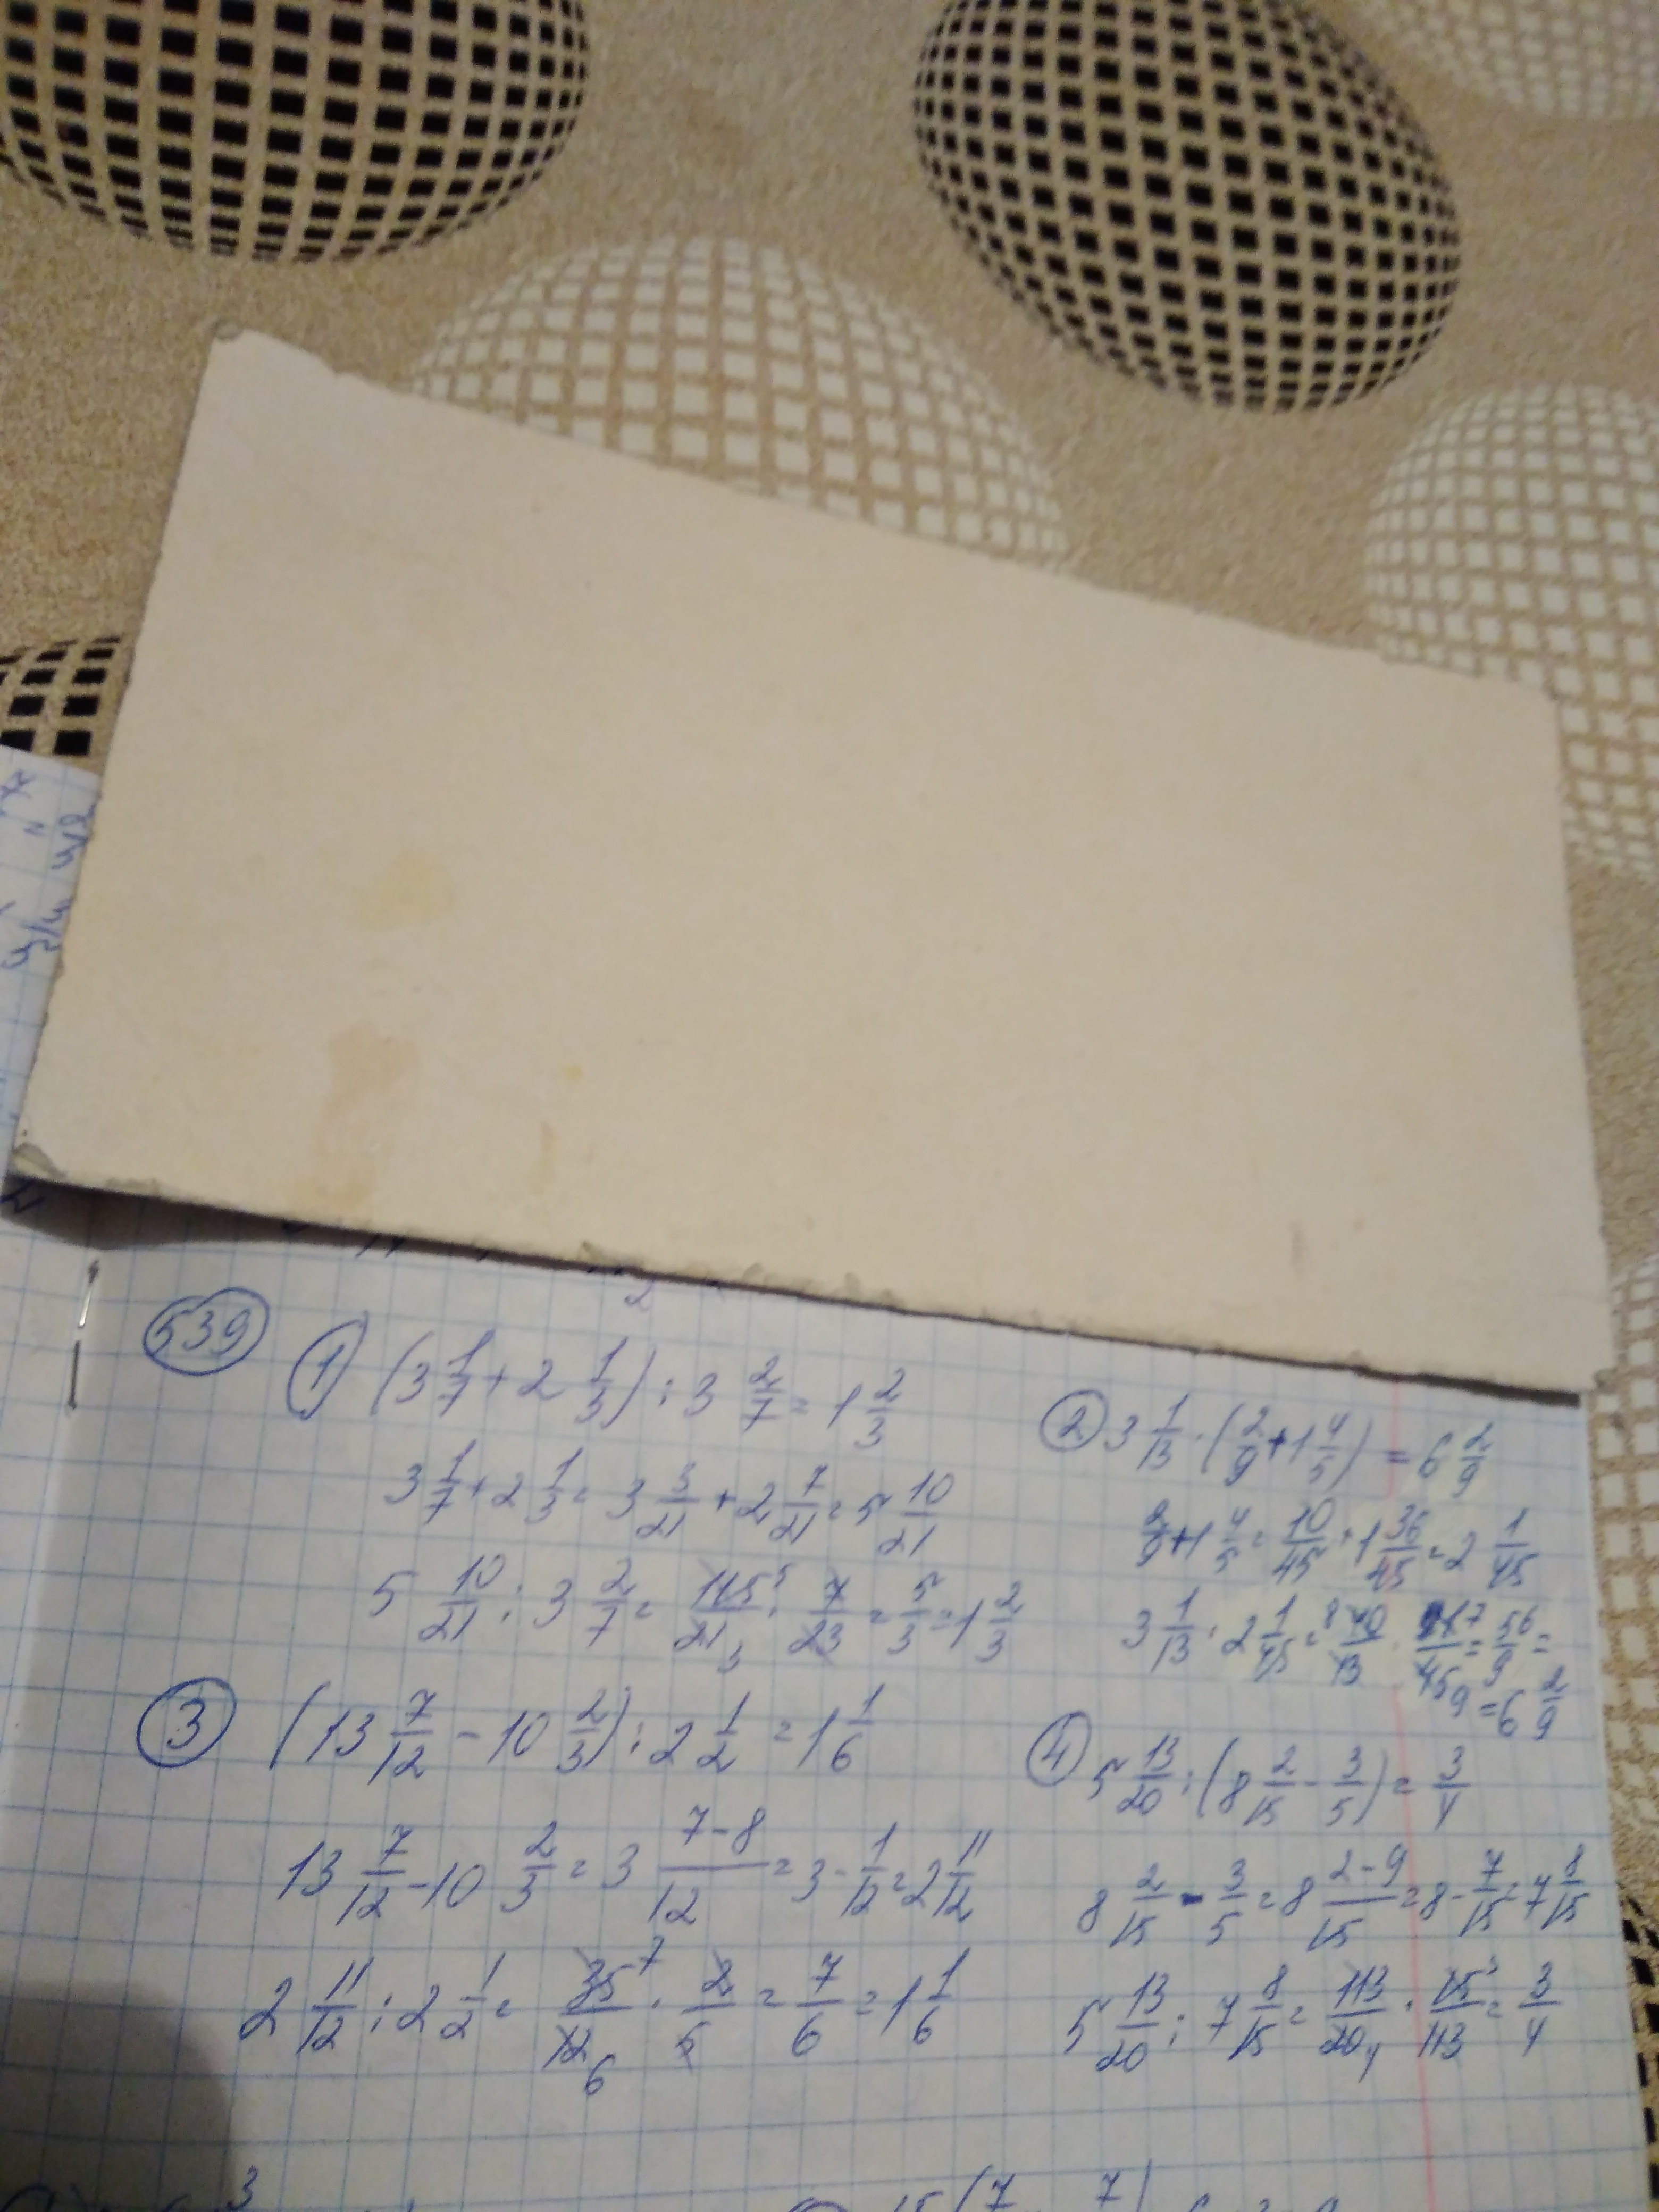 539
1) (3 1/7 + 2 1/3) : 3 2/7 = 1 2/3
3 1/7 + 2 1/3 = 3 3/21 + 2 7/21 = 5 10/21
5 10/21 : 3 2/7 = 115/21 · 7/23 = 5/3 = 1 2/3
2) 3 1/13 · (2/9 + 1 4/5) = 6 2/9
2/9 + 1 4/5 = 10/45 + 1 36/45 = 2 1/45
3 1/13 · 2 1/45 = 40/13 · 91/45 = 56/9 =
= 6 2/9
3) (13 7/12 - 10 2/3) : 2 1/2 = 1 1/6
13 7/12 - 10 2/3 = 3 (7-8)/12 = 3 - 1/12 = 2 11/12
2 11/12 : 2 1/2 = 35/12 · 2/5 = 7/6 = 1 1/6
4) 5 13/20 : (8 2/15 - 3/5) = 3/4
8 2/15 - 3/5 = 8 (2-9)/15 = 8 - 7/15 = 7 8/15
5 13/20 : 7 8/15 = 113/20 · 15/113 = 3/4